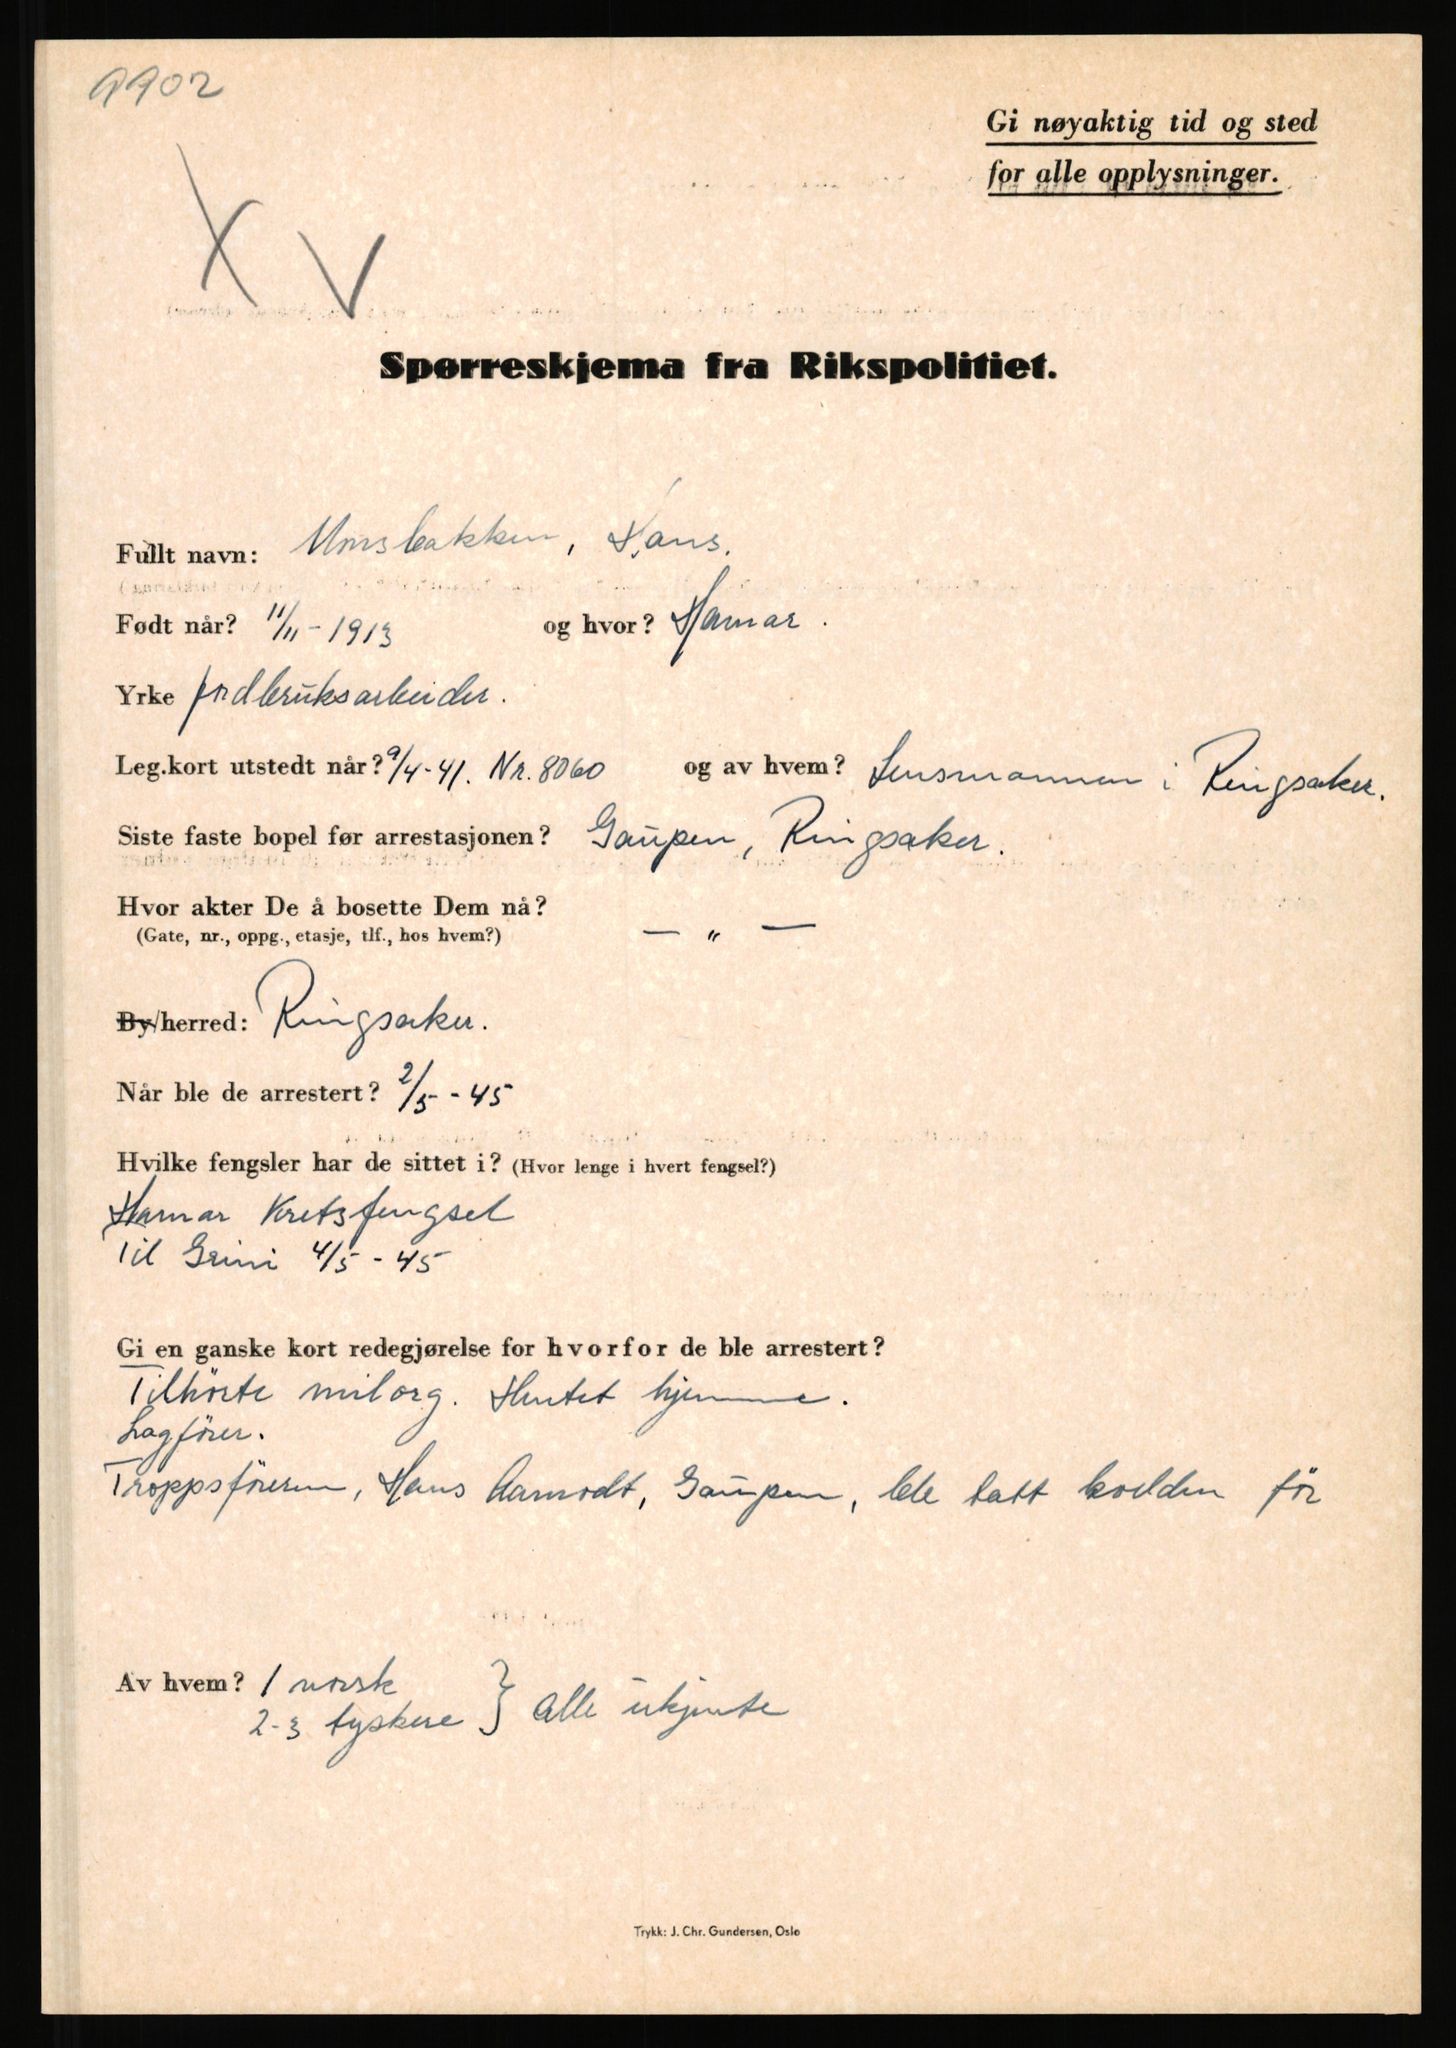 9902
Gi nøyaktig tid og sted
for alle opplysninger.
X V
Spørreskjema fra Rikspolitiet.
Fullt navn: Monsbakken, Hans.
Født når? 11/11-1913 og hvor? Hamar.
Yrke jordbruksarbeider.
Leg.kort utstedt når? 9/4-41. Nr. 8060 og av hvem? Lensmannen i Ringsaker.
Siste faste bopel før arrestasjonen? Gaupen, Ringsaker.
Hvor akter De å bosette Dem nå?
(Gate, nr., oppg., etasje, tlf., hos hvem?) — " —
By/herred: Ringsaker.
Når ble de arrestert? 2/5-45
Hvilke fengsler har de sittet i? (Hvor lenge i hvert fengsel?)
Hamar Kretsfengsel
Til Grini 4/5-45
Gi en ganske kort redegjørelse for hvorfor de ble arrestert?
Tilhörte milorg. Hentet hjemme.
Lagförer.
Troppsföreren, Hans Aamodt, Gaupen, ble tatt kvelden för
Av hvem? 1 norsk
2-3 tyskere } alle ukjente
Trykk: J. Chr. Gundersen, Oslo